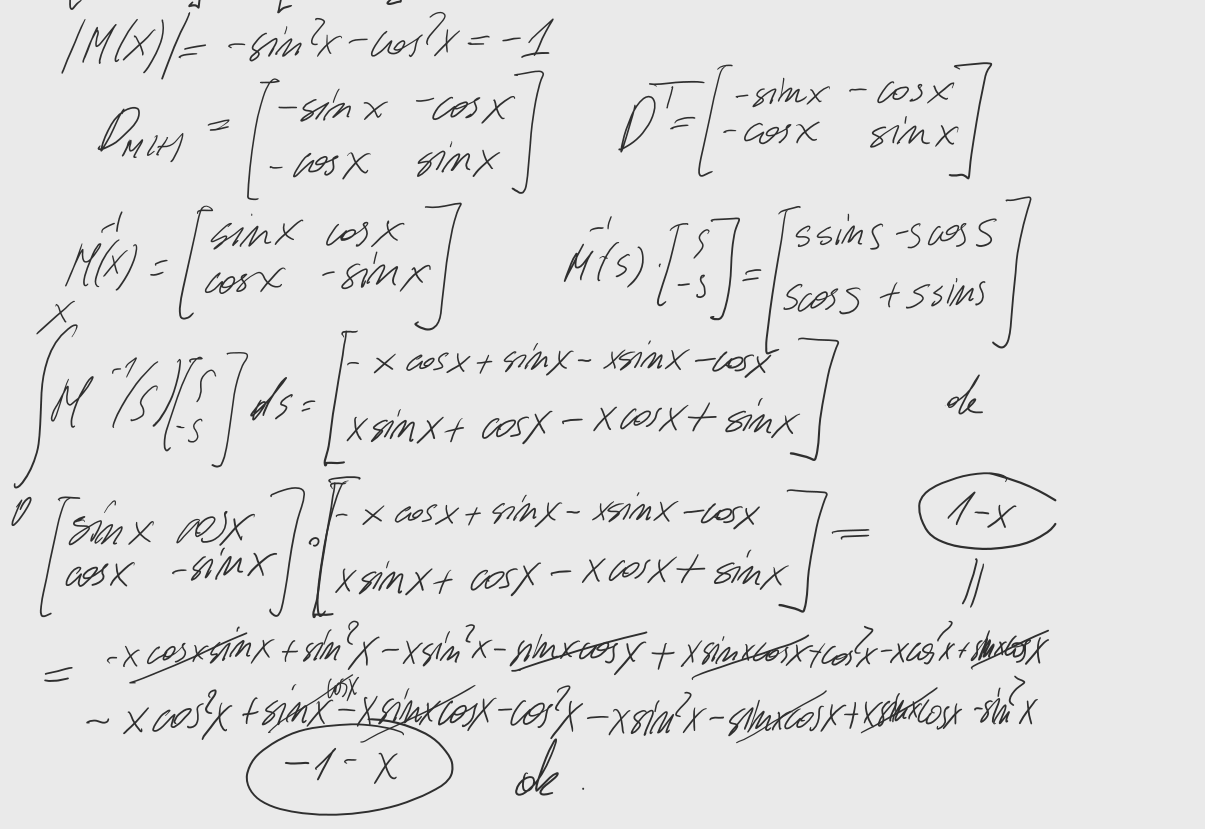 |M(x)| = -sin²x - cos²x = -1
D_M(x) = [ -sin x  -cos x ; -cos x  sin x ]  D^T = [ -sin x  -cos x ; -cos x  sin x ]
M⁻¹(x) = [ sin x  cos x ; cos x  -sin x ]  M⁻¹(s) · [ s ; -s ] = [ s sin s - s cos s ; s cos s + s sin s ]
∫₀ˣ M⁻¹(s) [ s ; -s ] ds = [ -x cos x + sin x - x sin x - cos x ; x sin x + cos x - x cos x + sin x ]  ok
[ sin x  cos x ; cos x  -sin x ] · [ -x cos x + sin x - x sin x - cos x ; x sin x + cos x - x cos x + sin x ] =  1-x
=
= -x cos x sin x + sin²x - x sin²x - sin x cos x + x sin x cos x + cos²x - x cos²x + sin x cos x
- x cos²x + sin x cos x - x sin x cos x - cos²x - x sin²x - sin x cos x + x sin x cos x - sin²x
-1 - x  ok.